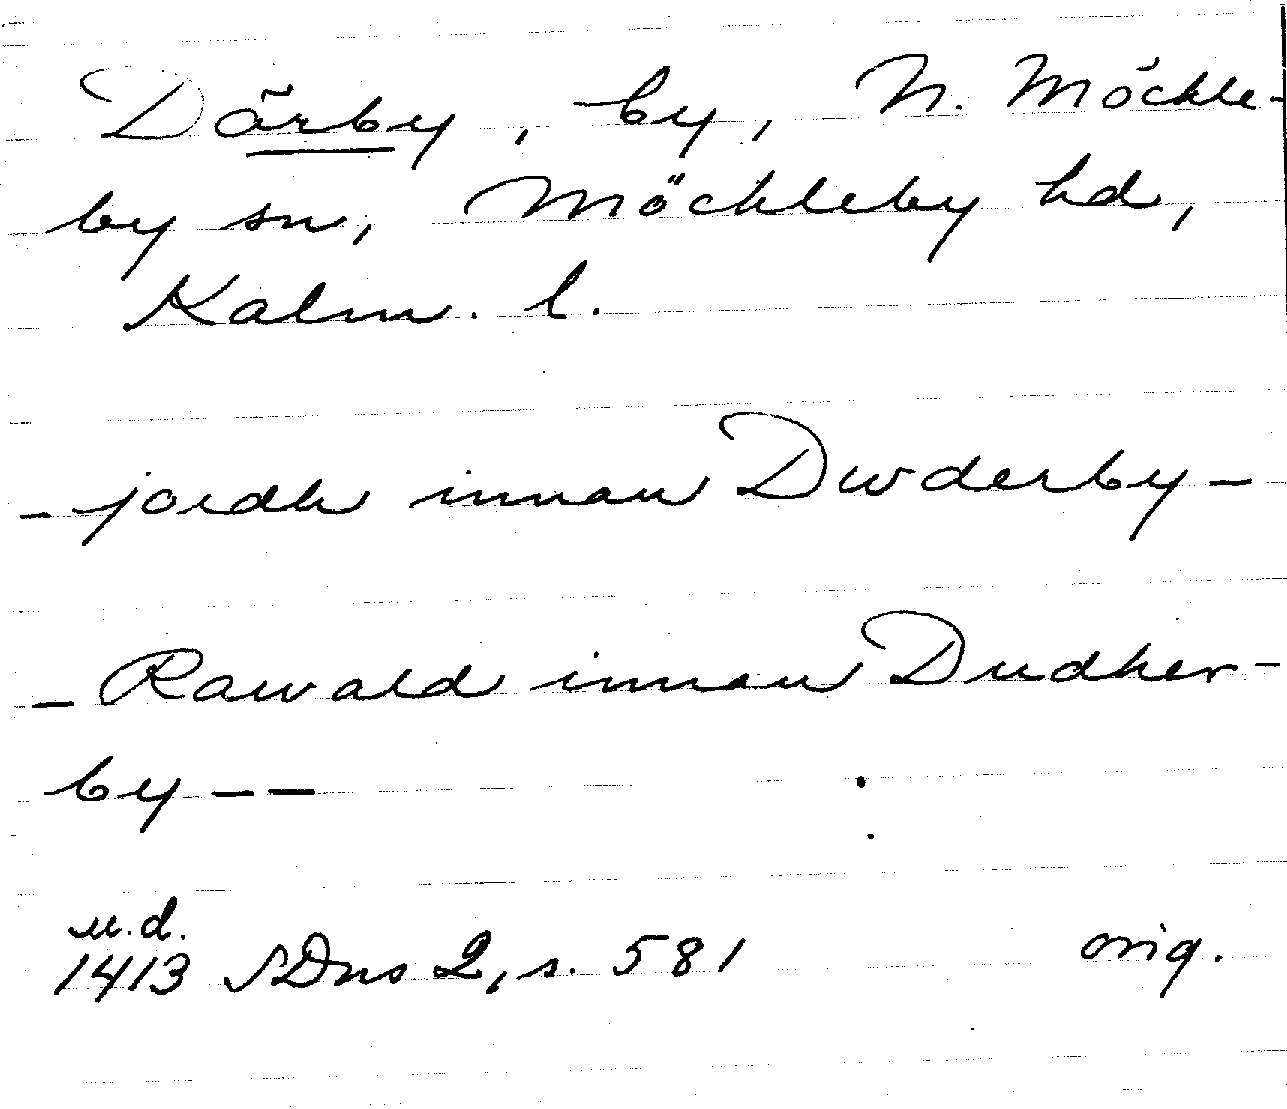 Dörby, by, N. Möckle-
by sn, Möckleby hd,
Kalm. l.
- jordh innan Dwderby -
- Rawald innan Dudher-
by - -
u.d.
1413 SDns 2, s. 581 orig.